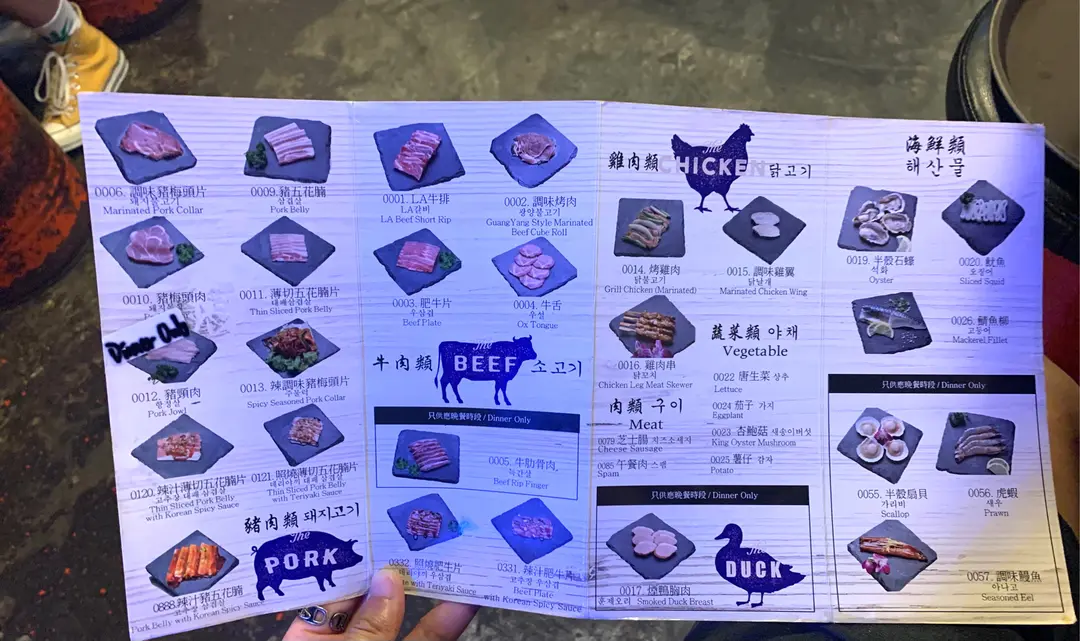 0006. 調味豬梅頭片
돼지불고기
Marinated Pork Collar
0009. 豬五花腩
삼겹살
Pork Belly
0010. 豬梅頭肉
0011. 薄切五花腩片
대패삼겹살
Thin Sliced Pork Belly
Dinner Only
0012. 豬頸肉
항정살
Pork Jowl
0013. 辣調味豬梅頭片
주물럭
Spicy Seasoned Pork Collar
0120. 辣汁薄切五花腩片
고추장 대패 삼겹살
Thin Sliced Pork Belly
with Korean Spicy Sauce
0121. 照燒薄切五花腩片
데리야끼 대패 삼겹살
Thin Sliced Pork Belly
with Teriyaki Sauce
豬肉類 돼지고기
The
PORK
0888. 辣汁豬五花腩
고추장 삼겹살
Pork Belly with Korean Spicy Sauce
0001. LA牛排
LA갈비
LA Beef Short Rip
0002. 調味烤肉
광양불고기
GuangYang Style Marinated
Beef Cube Roll
0003. 肥牛片
우삼겹
Beef Plate
0004. 牛舌
우설
Ox Tongue
牛肉類
The
BEEF
소고기
只供應晚餐時段 / Dinner Only
0005. 牛肋骨肉
늑간살
Beef Rip Finger
0332. 照燒肥牛片
데리야끼 우삼겹
with Teriyaki Sauce
0331. 辣汁肥牛片
고추장 우삼겹
Beef Plate
with Korean Spicy Sauce
雞肉類
The
CHICKEN
닭고기
0014. 烤雞肉
닭불고기
Grill Chicken (Marinated)
0015. 調味雞翼
닭날개
Marinated Chicken Wing
0016. 雞肉串
닭꼬치
Chicken Leg Meat Skewer
蔬菜類 야채
Vegetable
0022 唐生菜 상추
Lettuce
0024 茄子 가지
Eggplant
0023 杏鮑菇 새송이버섯
King Oyster Mushroom
0025 薯仔 감자
Potato
肉類 구이
Meat
0079 芝士腸 치즈소세지
Cheese Sausage
0085 午餐肉 스팸
Spam
只供應晚餐時段 / Dinner Only
The
DUCK
0017 燒鴨胸肉
훈제오리 Smoked Duck Breast
海鮮類
해산물
0019. 半殼石蠔
석화
Oyster
0020. 魷魚
오징어
Sliced Squid
0026. 鯖魚柳
고등어
Mackerel Fillet
只供應晚餐時段 / Dinner Only
0055. 半殼扇貝
가리비
Scallop
0056. 虎蝦
새우
Prawn
0057. 調味鰻魚
아나고
Seasoned Eel